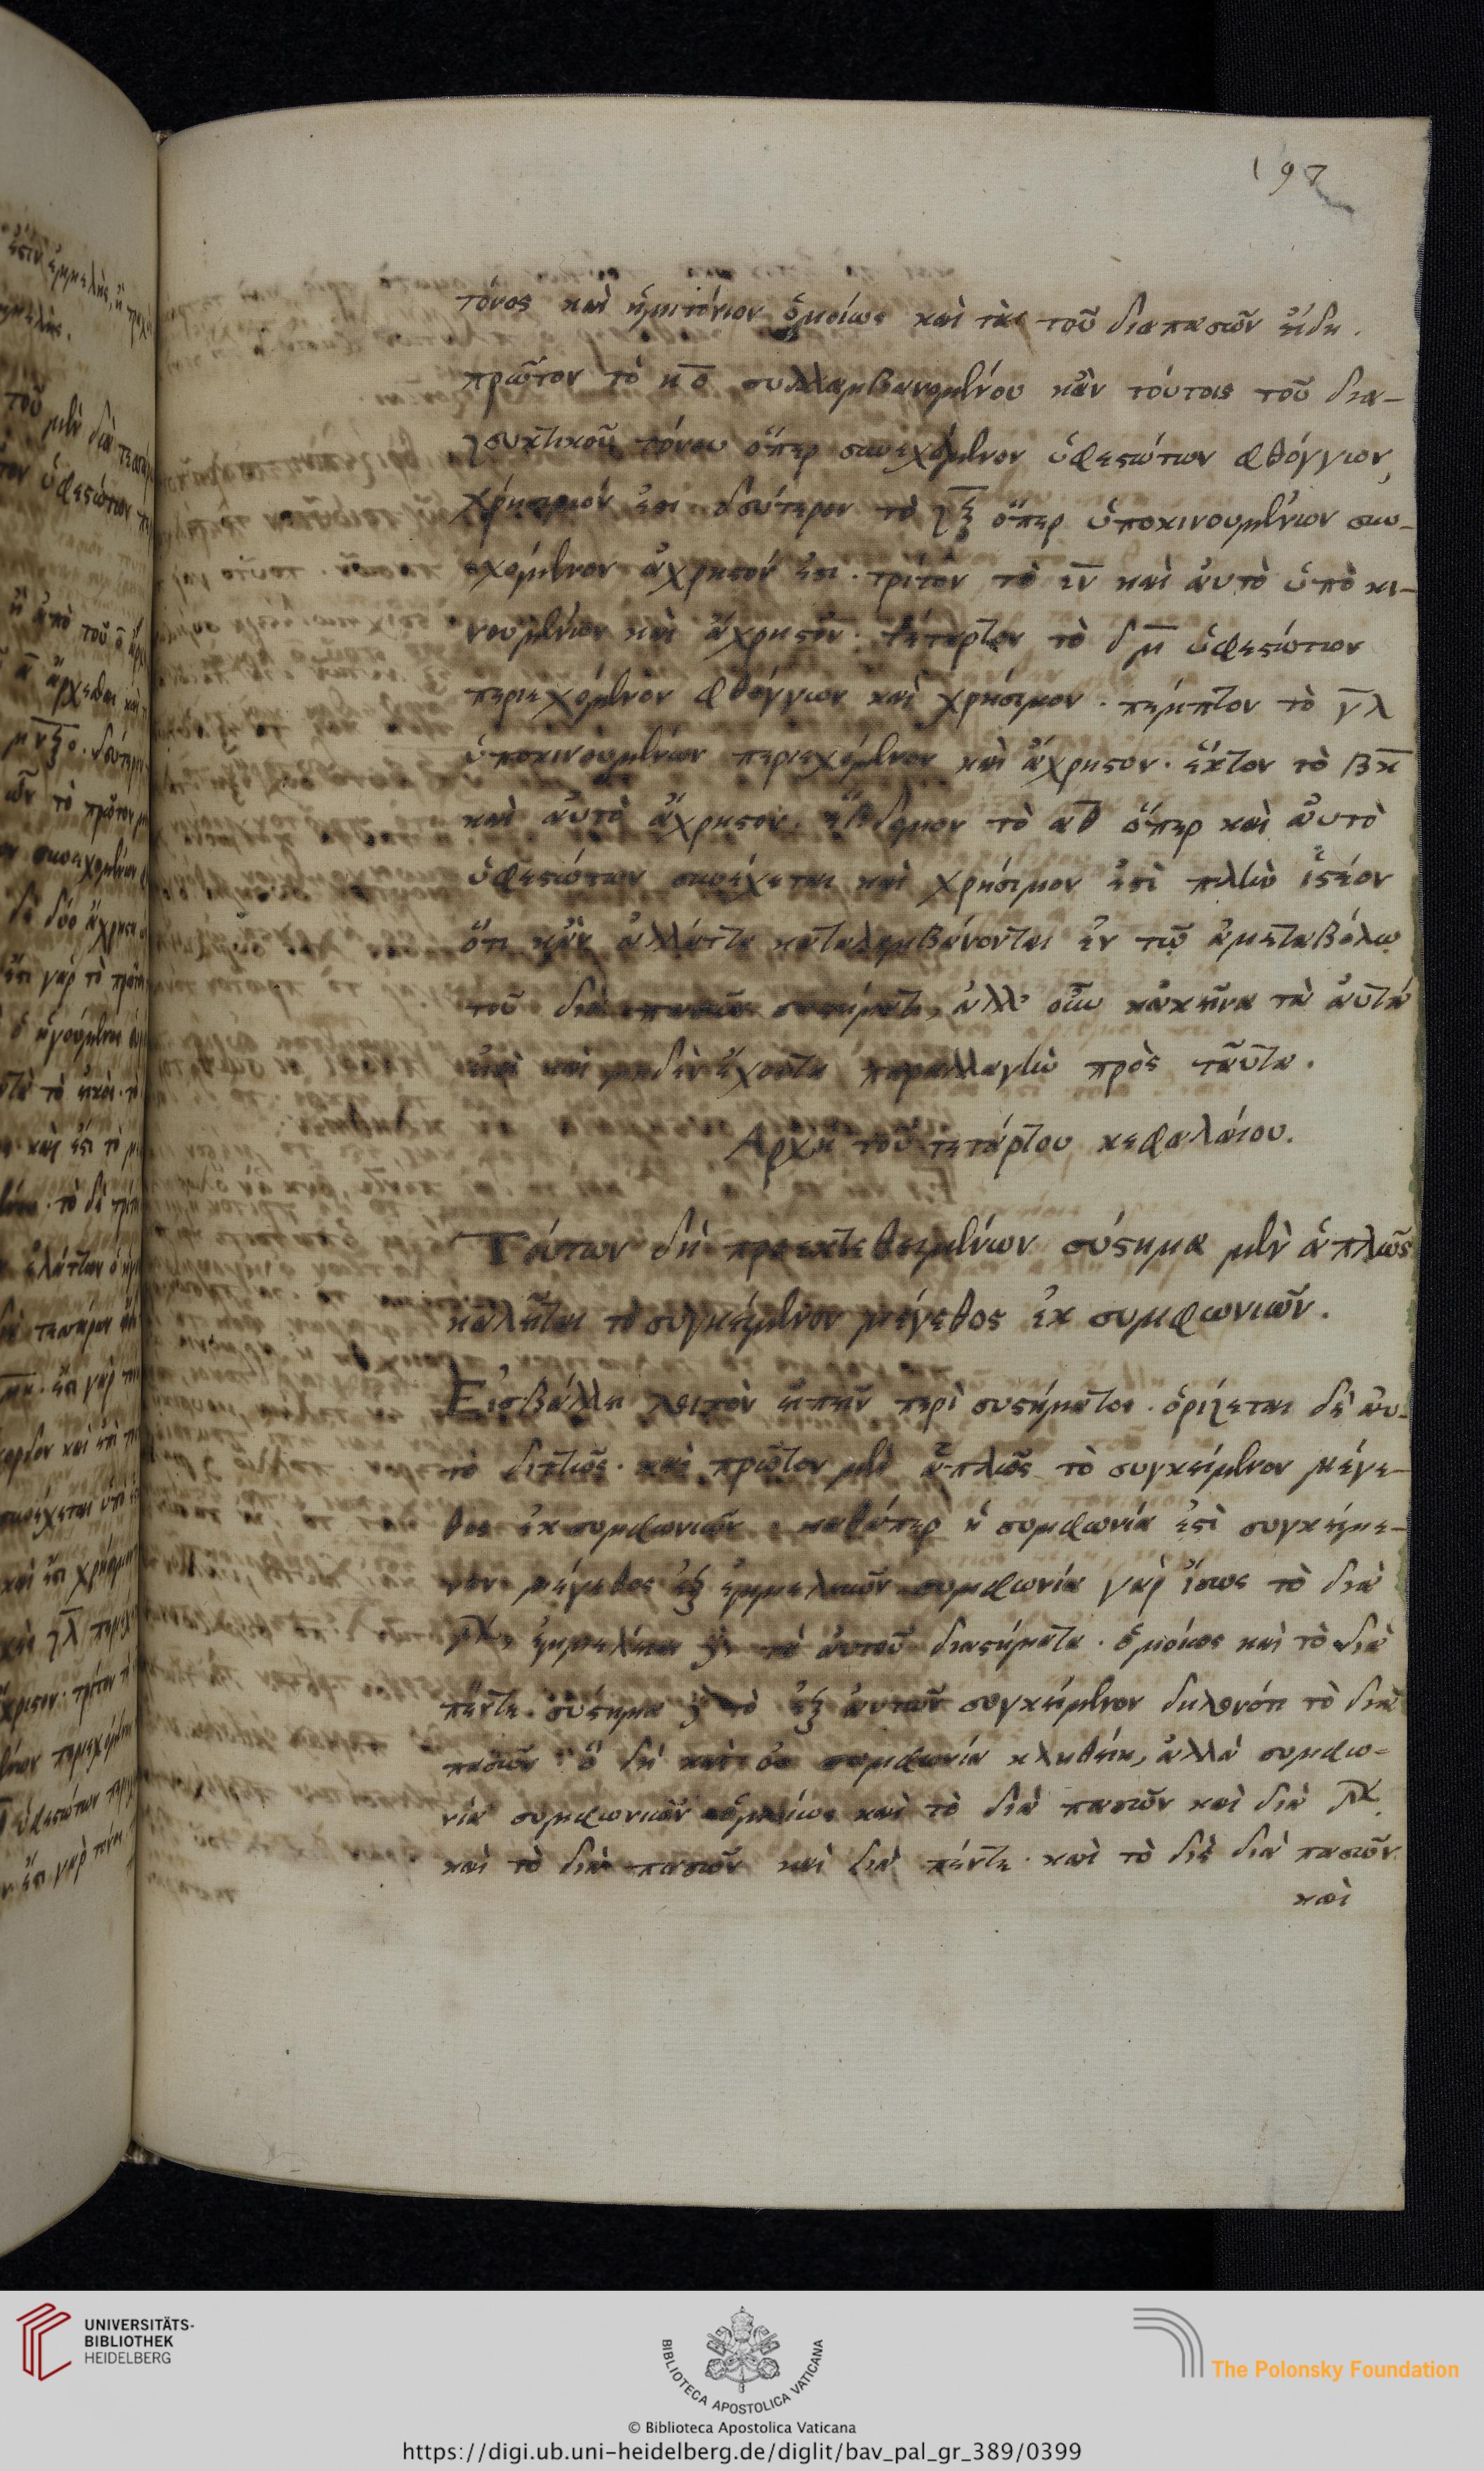 197
τόνος καὶ ἡμιτόνιον ὁμοίως καὶ τὰ τοῦ διαπασῶν εἴδη.
πρῶτον τὸ η̅ο̅ συλλαμβανομένου κἀν τούτοις τοῦ δια-
ζευκτικοῦ τόνου ὅπερ συνεχόμενον ὑφεστώτων φθόγγων,
χρήσιμόν ἐστι δεύτερον τὸ ζ̅ξ̅ ὅπερ ὑποκινουμένων συν-
εχόμενον ἄχρηστόν ἐστι. τρίτον τὸ ε̅ν̅ καὶ αὐτὸ ὑπὸ κι-
νουμένων καὶ ἄχρηστον. τέταρτον τὸ δ̅μ̅ ὑφεστώτων
περιεχόμενον φθόγγων καὶ χρήσιμον. πέμπτον τὸ γ̅λ̅
ὑποκινουμένων περιεχόμενον καὶ ἄχρηστον. ἕκτον τὸ β̅κ̅
καὶ αὐτὸ ἄχρηστον. ἕβδομον τὸ α̅θ̅ ὅπερ καὶ αὐτὸ
ὑφεστώτων συνέχεται καὶ χρήσιμον ἐστὶ πλὴν ἰστέον
ὅτι κἂν ἀλλάττα καταλαμβάνονται ἐν τῷ ἀμεταβόλῳ
τοῦ διὰ πασῶν συστήματι, ἀλλ' οὖν κἀκεῖνα τὰ αὐτά
εἰσὶ καὶ μηδὲν ἔχοντα παραλλαγὴν πρὸς ταῦτα.
Ἀρχὴ τοῦ τετάρτου κεφαλαίου.
Τούτων δὴ προεκτεθειμένων σύστημα μὲν ἁπλῶς
καλεῖται τὸ συγκείμενον μέγεθος ἐκ συμφωνιῶν.
Εἰσβάλλει λοιπὸν εἰπεῖν περὶ συστήματος. ὁρίζεται δὲ αὐ-
τὸ διττῶς. καὶ πρῶτον μὲν ἁπλῶς τὸ συγκείμενον μέγε-
θος ἐκ συμφωνιῶν. καθάπερ ἡ συμφωνία ἐστὶ συγκείμε-
νον μέγεθος ἐξ ἐμμελειῶν συμφωνία γὰρ ἴσως τὸ διὰ
ἐμμέλειαι τὰ αὐτοῦ διαστήματα. ὁμοίως καὶ τὸ διὰ
πέντε. σύστημα τὸ ἐξ αὐτῶν συγκείμενον δηλονότι τὸ διὰ
πασῶν. ὃ δὴ καὶ οὐ συμφωνία κληθείη, ἀλλὰ συμφω-
νία συμφωνιῶν ὁμοίως καὶ τὸ διὰ πασῶν καὶ διὰ
καὶ τὸ διὰ πασῶν καὶ διὰ πέντε. καὶ τὸ δὶς διὰ πασῶν.
καὶ
UNIVERSITÄTS-
BIBLIOTHEK
HEIDELBERG
BIBLIOTECA APOSTOLICA VATICANA
The Polonsky Foundation
© Biblioteca Apostolica Vaticana
https://digi.ub.uni-heidelberg.de/diglit/bav_pal_gr_389/0399